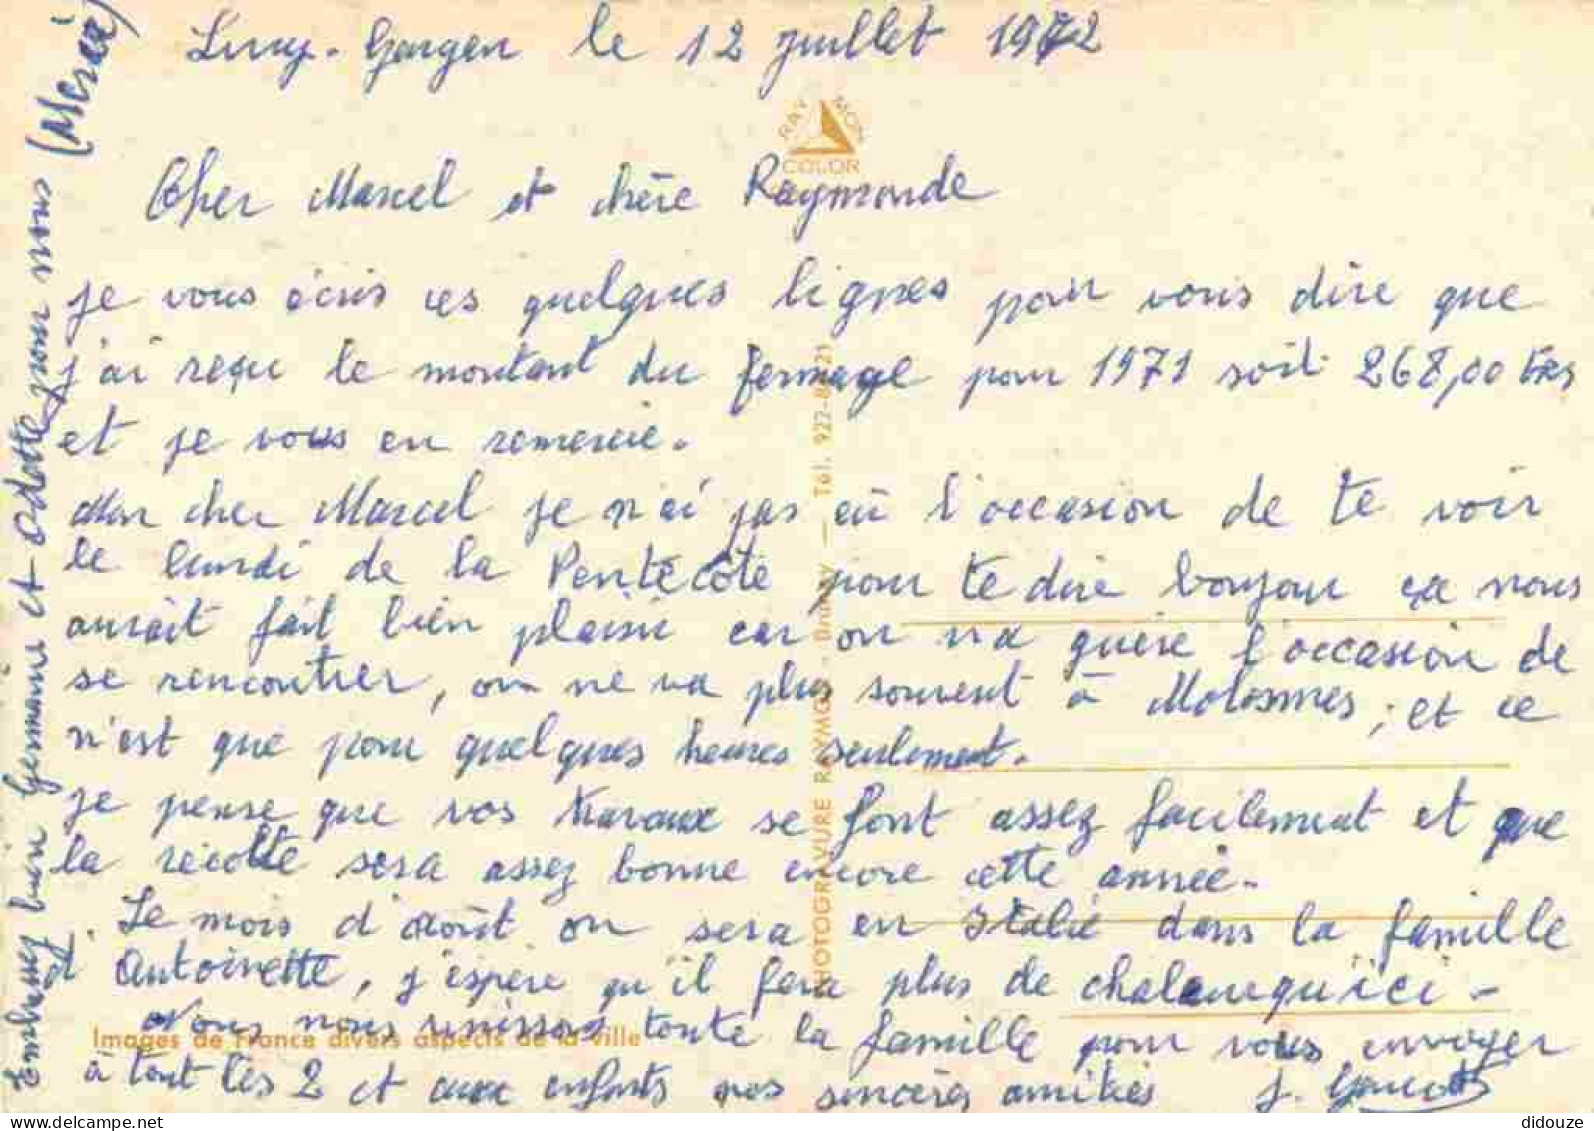 le 12 juillet 1972
RAYMON
COLOR
Cher Marcel et chère Raymonde
je vous écris ces quelques lignes pour vous dire que
j'ai reçu le montant du fermage pour 1971 soit 268,00 Frs
et je vous en remercie.
Mon cher Marcel je n'ai pas eù l'occasion de te voir
le lundi de la Pentecôte pour te dire bonjour ça nous
aurait fait bien plaisir car on n'a guère l'occasion de
se rencontrer, on ne va plus souvent à Molosmes ; et ce
n'est que pour quelques heures seulement.
je pense que vos travaux se font assez facilement et que
la récolte sera assez bonne encore cette année.
Le mois d'août on sera en Italie dans la famille
d'Antoinette, j'espère qu'il fera plus de chaleur qu'ici -
Nous nous unissons toute la famille pour vous envoyer
à tout les 2 et aux enfants nos sincères amitiés J.
Embrassez bien Germaine et Odette pour nous (Merci)
Images de France divers aspects de la ville
PHOTOGRAVURE RAYMON - Brunoy — Tél. 922-
didouze